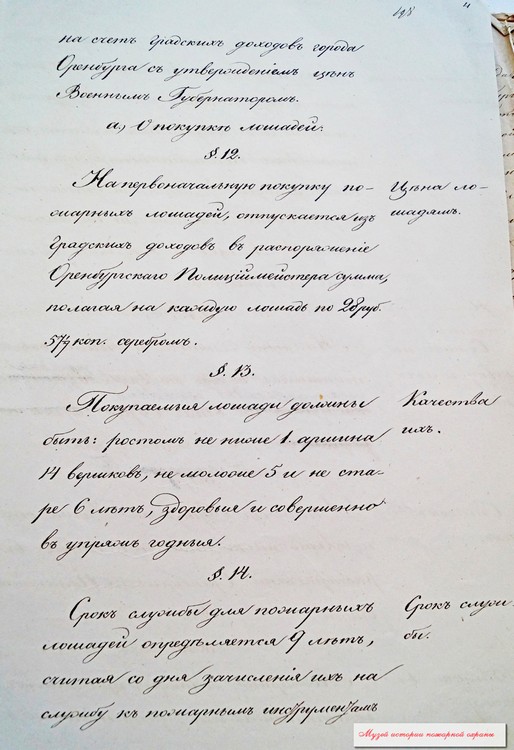 на счетъ градскихъ доходовъ города
Оренбурга съ утвержденіемъ цѣнъ
Военнымъ Губернаторомъ.
а) О покупкѣ лошадей.
§. 12.
На первоначальную покупку по-
жарныхъ лошадей, отпускается изъ
градскихъ доходовъ въ распоряженіе
Оренбургскаго Полиціймейстера сумма,
полагая на каждую лошадь по 28 руб.
57 1/7 коп. серебромъ.
Цѣна ло-
шадямъ.
§. 13.
Покупаемыя лошади должны
быть: ростомъ не ниже 1. аршина
14 вершковъ, не моложе 5 и не ста-
ре 6 лѣтъ, здоровыя и совершенно
въ упряжъ годныя.
Качества
ихъ.
§. 14.
Срокъ службы для пожарныхъ
лошадей опредѣляется 9 лѣтъ,
считая со дня зачисленія ихъ на
службу къ пожарнымъ инструментамъ
Срокъ служ-
бы.
Музей истории пожарной охраны